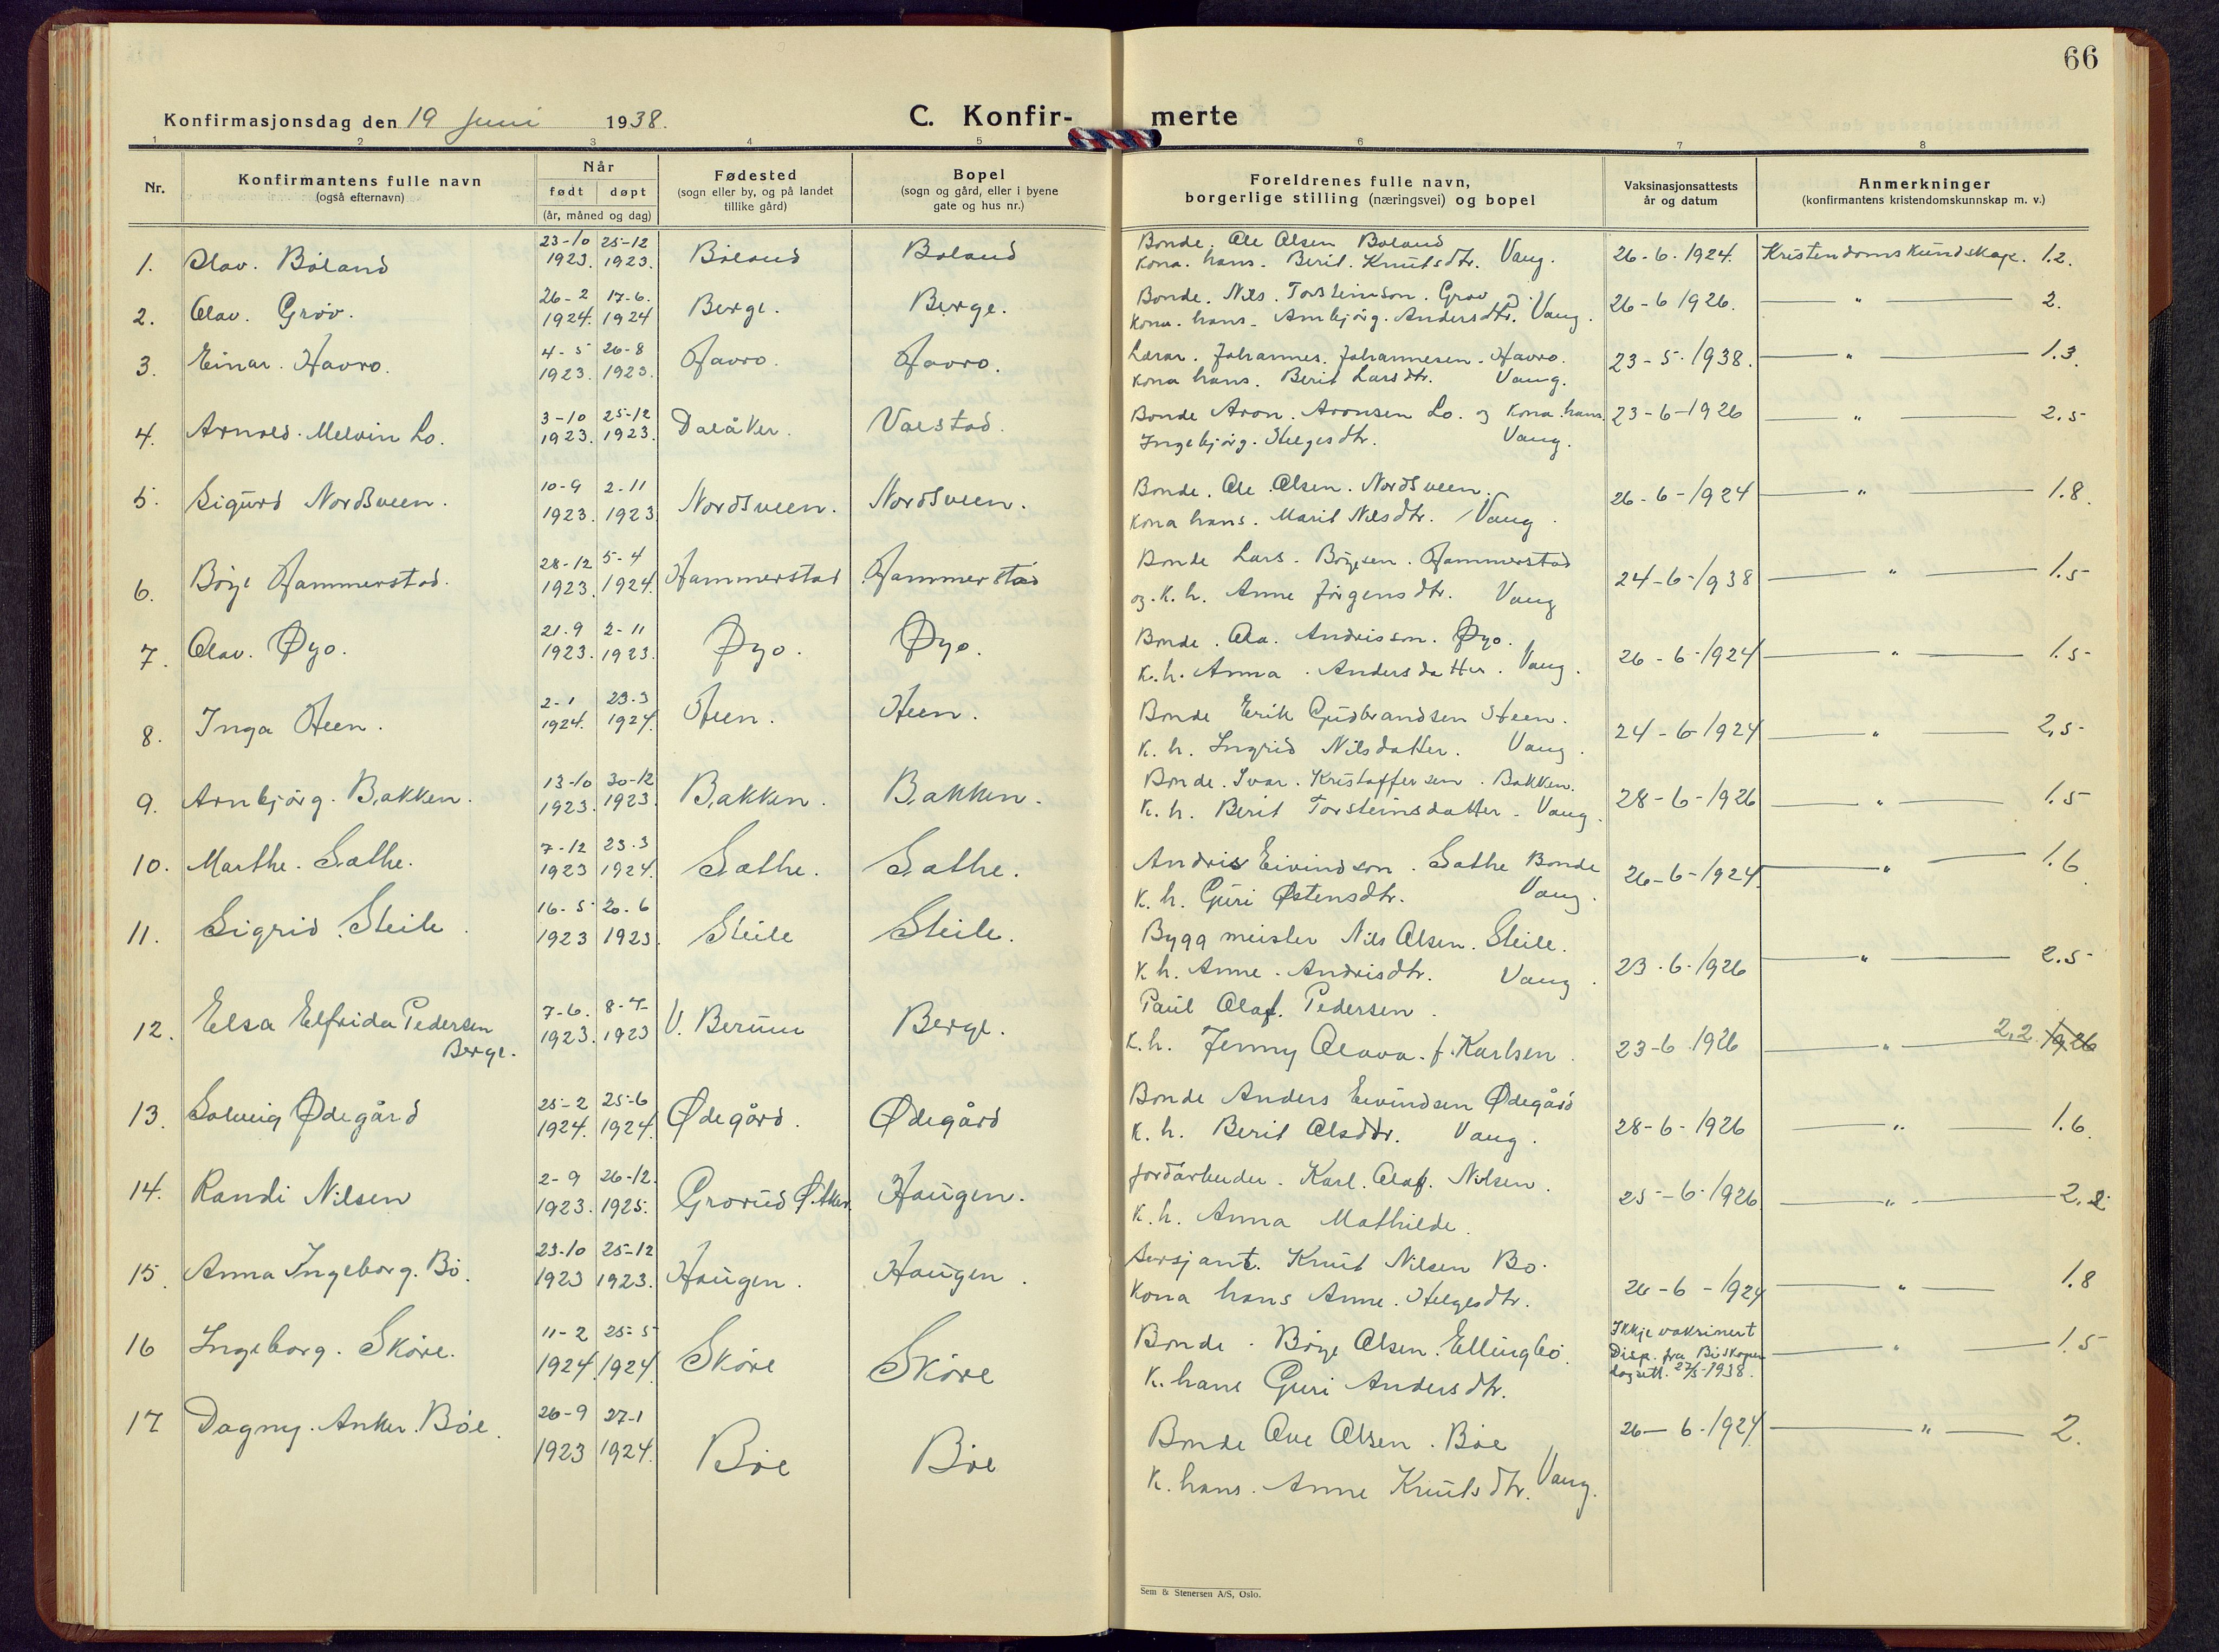 66
Konfirmasjonsdag den 19 Juni 1938.
C. Konfir- merte
1 2 3 4 5 6 7 8
Nr.
Konfirmantens fulle navn
(også efternavn)
Når
født døpt
(år, måned og dag)
Fødested
(sogn eller by, og på landet
tillike gård)
Bopel
(sogn og gård, eller i byene
gate og hus nr.)
Foreldrenes fulle navn,
borgerlige stilling (næringsvei) og bopel
Vaksinasjonsattests
år og datum
Anmerkninger
(konfirmantens kristendomskunnskap m. v.)
1. Olav. Bøland 23-10 1923. 25-12 1923. Bøland Boland
Bonde. Ole Olsen Boland
Kona. hans. Berit. Knutsdtr. Vang. 26-6-1924. Kristendomskundskap. 1.2.
2. Olav. Grøv. 26-2 1924. 17-6. 1924 Berge. Berge.
Bonde. Nils. Torsteinson. Grøv og.
Kona. hans. Arnbjørg. Andersdtr. Vang. 26-6 1926. " 2.
3. Einar. Havro. 4-5 1923. 26-8 1923. Havro. Havro.
Lærar. Johannes. Johannesen. Havro.
Kona hans. Berit Larsdtr. Vang. 23-5-1938. " 1.3.
4. Arnold. Melvin Lo. 3-10 1923. 25-12 1923. Dalåker. Valstad.
Bonde Aron. Aronsen Lo. og Kona. hans.
Ingebjørg. Helgesdtr. Vang. 23-6-1926 " 2.5
5. Sigurd Nordsveen. 10-9 1923. 2-11 1923 Nordsveen. Nordsveen.
Bonde. Ole. Olsen. Nordsveen.
Kona hans. Marit Nilsdtr. Vang. 26-6-1924 " 1.8.
6. Børge Hammerstad. 28-12 1923. 5-4 1924. Hammerstad Hammerstad
Bonde Lars. Børgesen. Hammerstad
og. K. h. Anne Jørgensdtr. Vang 24-6-1938 " 1.5
7. Olav. Øyo. 21.9 1923. 2-11 1923. Øyo. Øyo.
Bonde. Ola. Andrisson. Øyo.
K. h. Anna. Andersdatter. Vang. 26-6-1924 " 1.5
8. Inga Heen. 2-1 1924. 23.3 1924. Heen. Heen.
Bonde Erik Gudbrandsen Heen.
K. h. Ingrid Nilsdatter. Vang. 24-6-1924 " 2,5
9. Arnbjørg. Bakken. 13-10 1923. 30-12 1923. Bakken. Bakken.
Bonde. Ivar. Kristoffersen. Bakken.
K. h. Berit Torsteinsdatter. Vang. 28-6-1926 " 1.5
10. Marthe. Sathe. 7-12 1923 23.3 1924. Sathe. Sathe.
Andris Eivindson. Sathe Bonde
K. h. Guri Østensdtr. Vang. 26-6-1924. " 1.6
11. Sigrid. Steile. 16-5 1923 20.6 1923. Steile Steile.
Bygg meister Nils Olsen. Steile.
K h. Anne. Andrisdtr. Vang. 23.6.1926 " 2.5
12. Elsa Elfrida Pedersen
Berge. 7-6. 1923. 8-7 1923 V. Berum Berge.
Paul Olaf. Pedersen.
K. h. Jenny Olava. f. Karlsen. 23-6 1926 " 2,2 1926
13. Solveig Ødegård 25-2 1924. 25-6 1924. Ødegård. Ødegård
Bonde Anders Eivindsen Ødegård
K. h. Berit Olsdtr. Vang. 28-6-1926 " 1.6.
14. Randi Nilsen 2-9 1923. 26-12. 1925. Grorud Ø.Aker. Haugen.
Jordarbeider. Karl. Olaf. Nilsen.
K. h. Anna Mathilde. 25-6-1926 " 2.2
15. Anna Ingeborg. Bø. 23-10 1923 25-12 1923. Haugen. Haugen.
Sersjant. Knut Nilsen Bø.
Kona hans Anne. Helgesdtr. 26-6-1924 " 1.8
16 Ingeborg. Skøre. 11-2 1924. 25-5 1924. Skøre Skøre
Bonde. Børge Olsen. Ellingbø.
K. hans Guri Andersdtr. Ikkje vaksinert
Disp. fra Biskopen
dagsett. 27/5-1938. " 1.5
17 Dagny. Anker. Bøe. 26-9 1923 27-1 1924. Bøe Bøe
Bonde Ole Olsen. Bøe
K. hans. Anne Knutsdtr. Vang. 26-6-1924. " 2.
Sem & Stenersen A/S, Oslo.